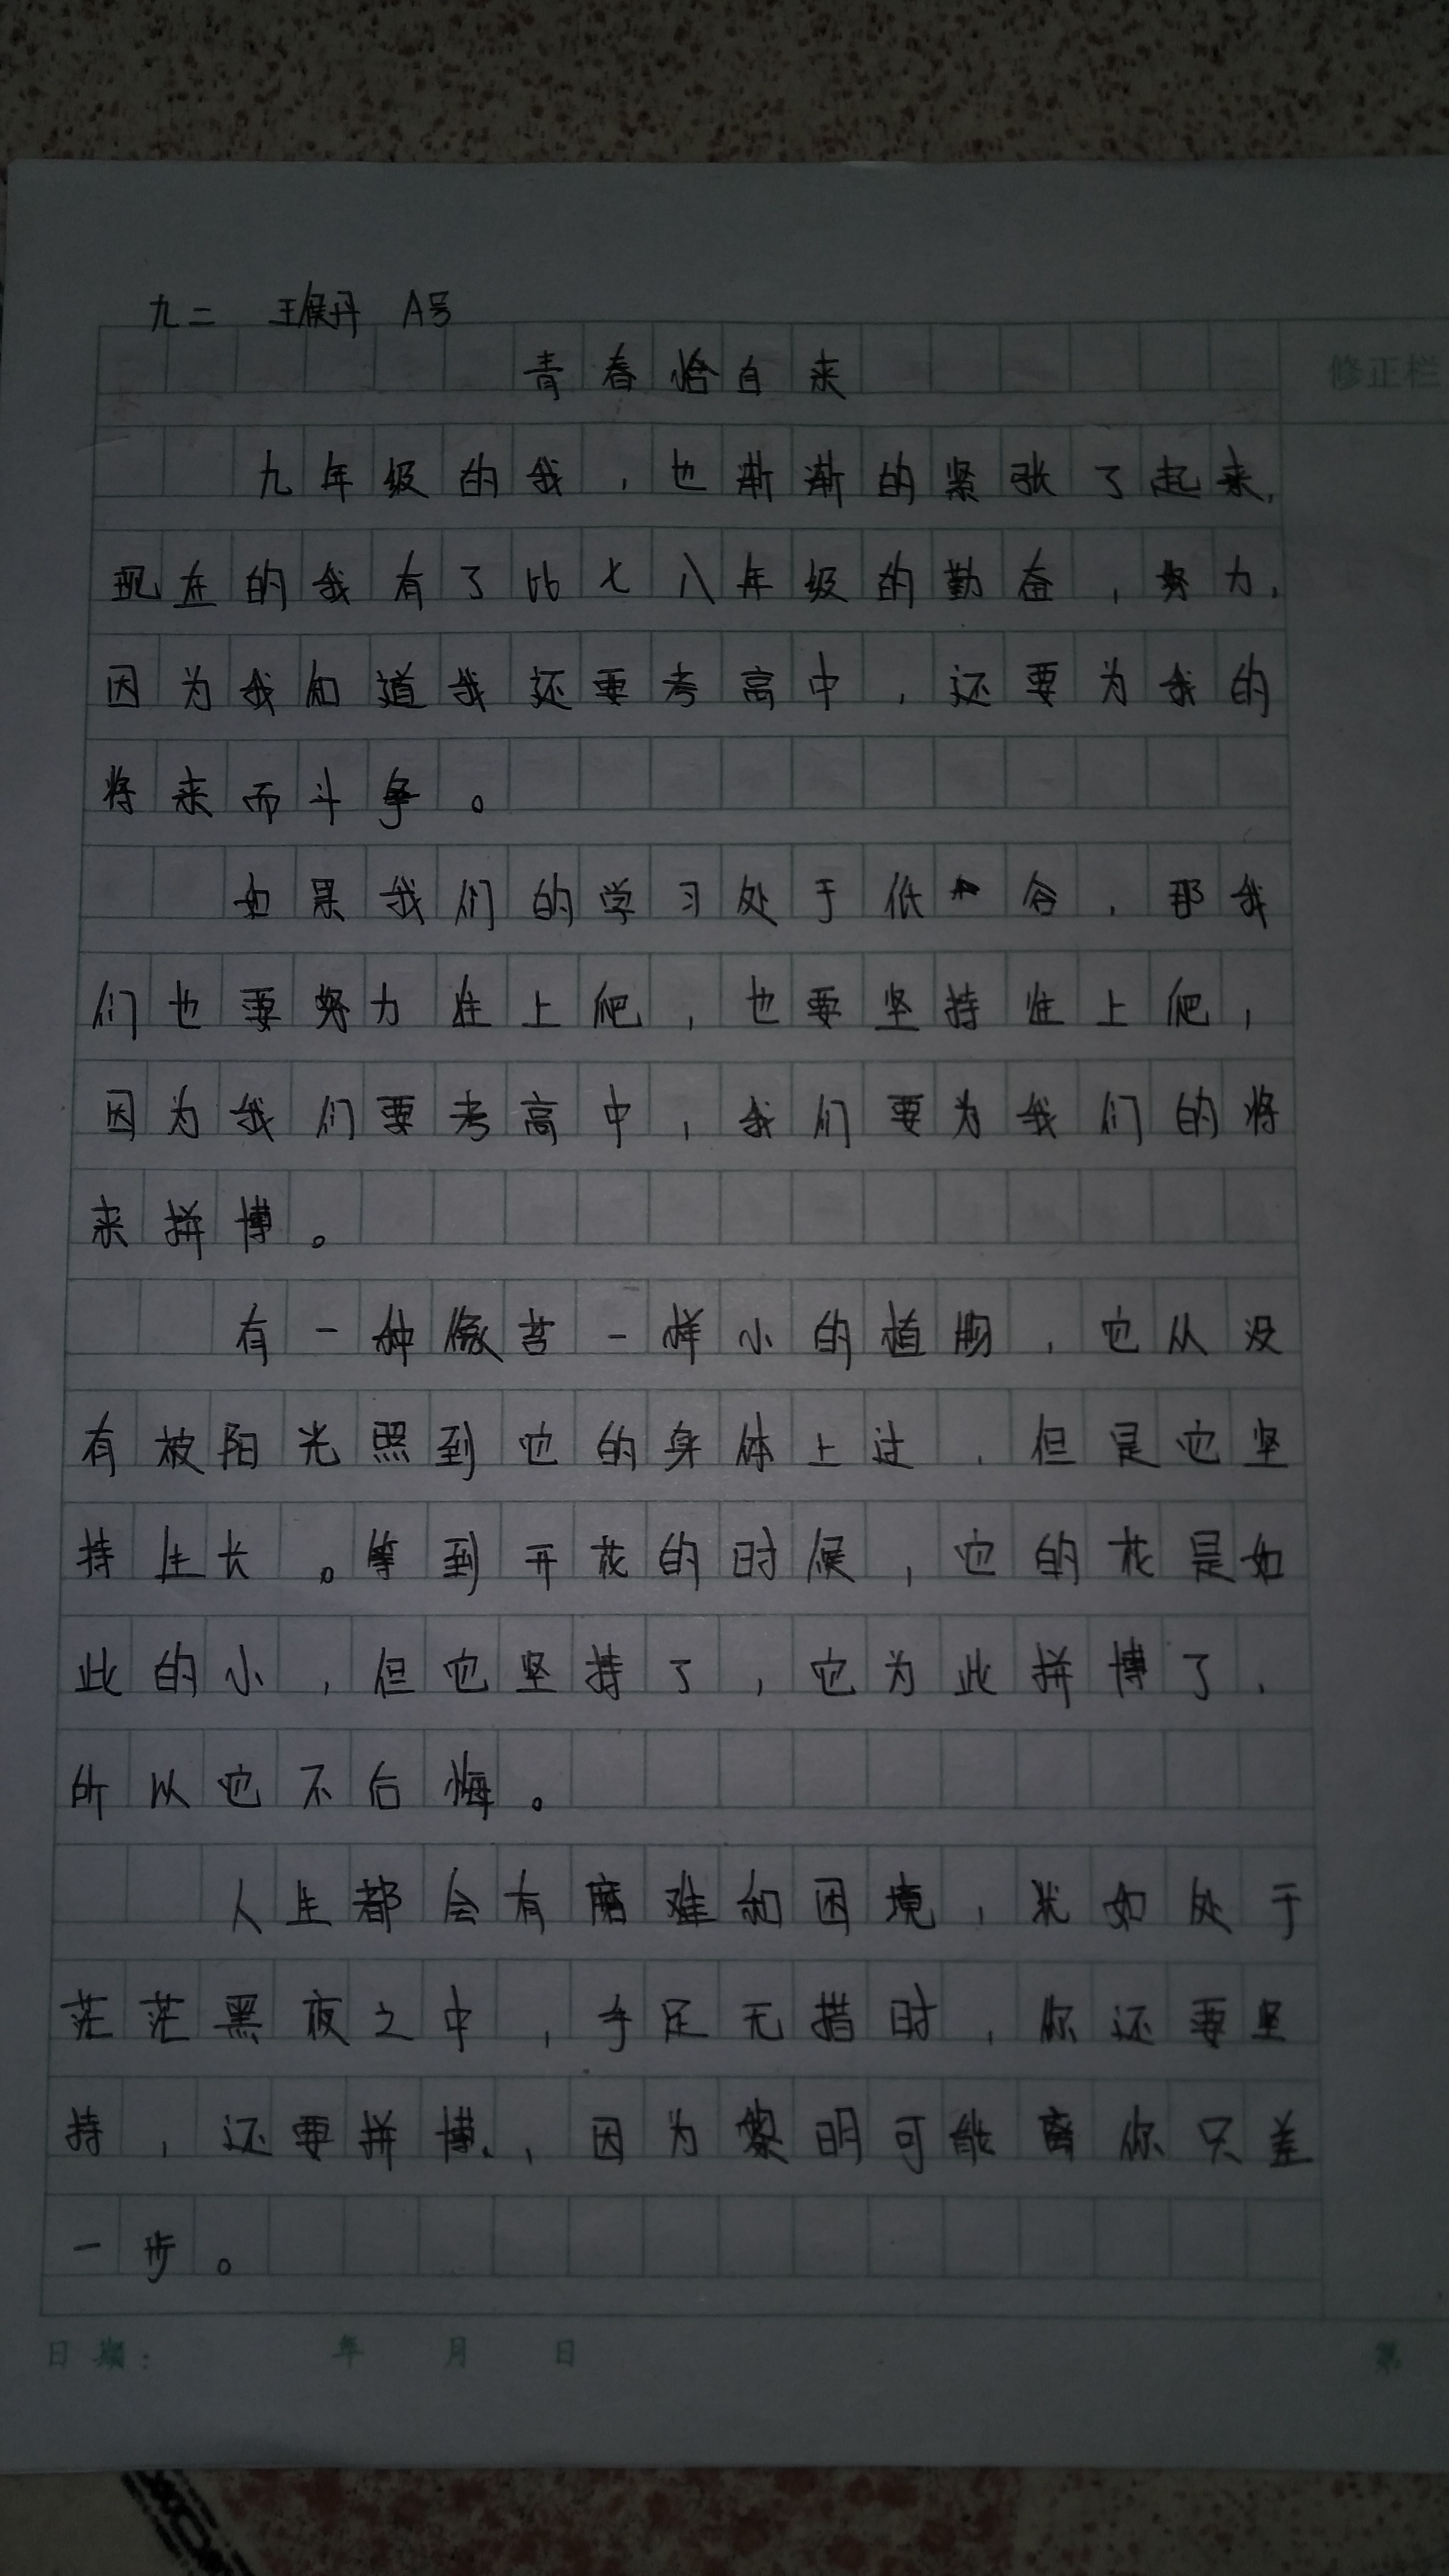 九二 王保丹 A号
青春恰自来
修正栏
九年级的我，也渐渐的紧张了起来，
现在的我有了比七八年级的勤奋，努力，
因为我知道我还要考高中，还要为我的
将来而斗争。
如果我们的学习处于低谷，那我
们也要努力往上爬，也要坚持往上爬，
因为我们要考高中，我们要为我们的将
来拼博。
有一种像苔一样小的植物，它从没
有被阳光照到它的身体上过，但是它坚
持生长。等到开花的时候，它的花是如
此的小，但它坚持了，它为此拼博了，
所以它不后悔。
人生都会有磨难和困境，犹如处于
茫茫黑夜之中，手足无措时，你还要坚
持，还要拼博，因为黎明可能离你只差
一步。
日期： 年 月 日 第